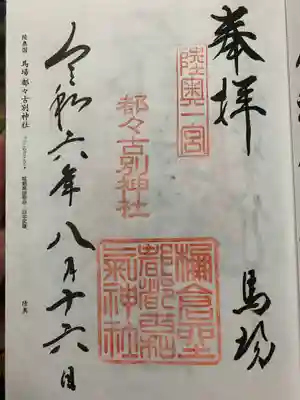 奉拝
馬場
陸奥一宮
都々古別神社
都都古和
氣神社
令和六年八月十六日
陸奥国 馬場 都々古別神社
陸奥